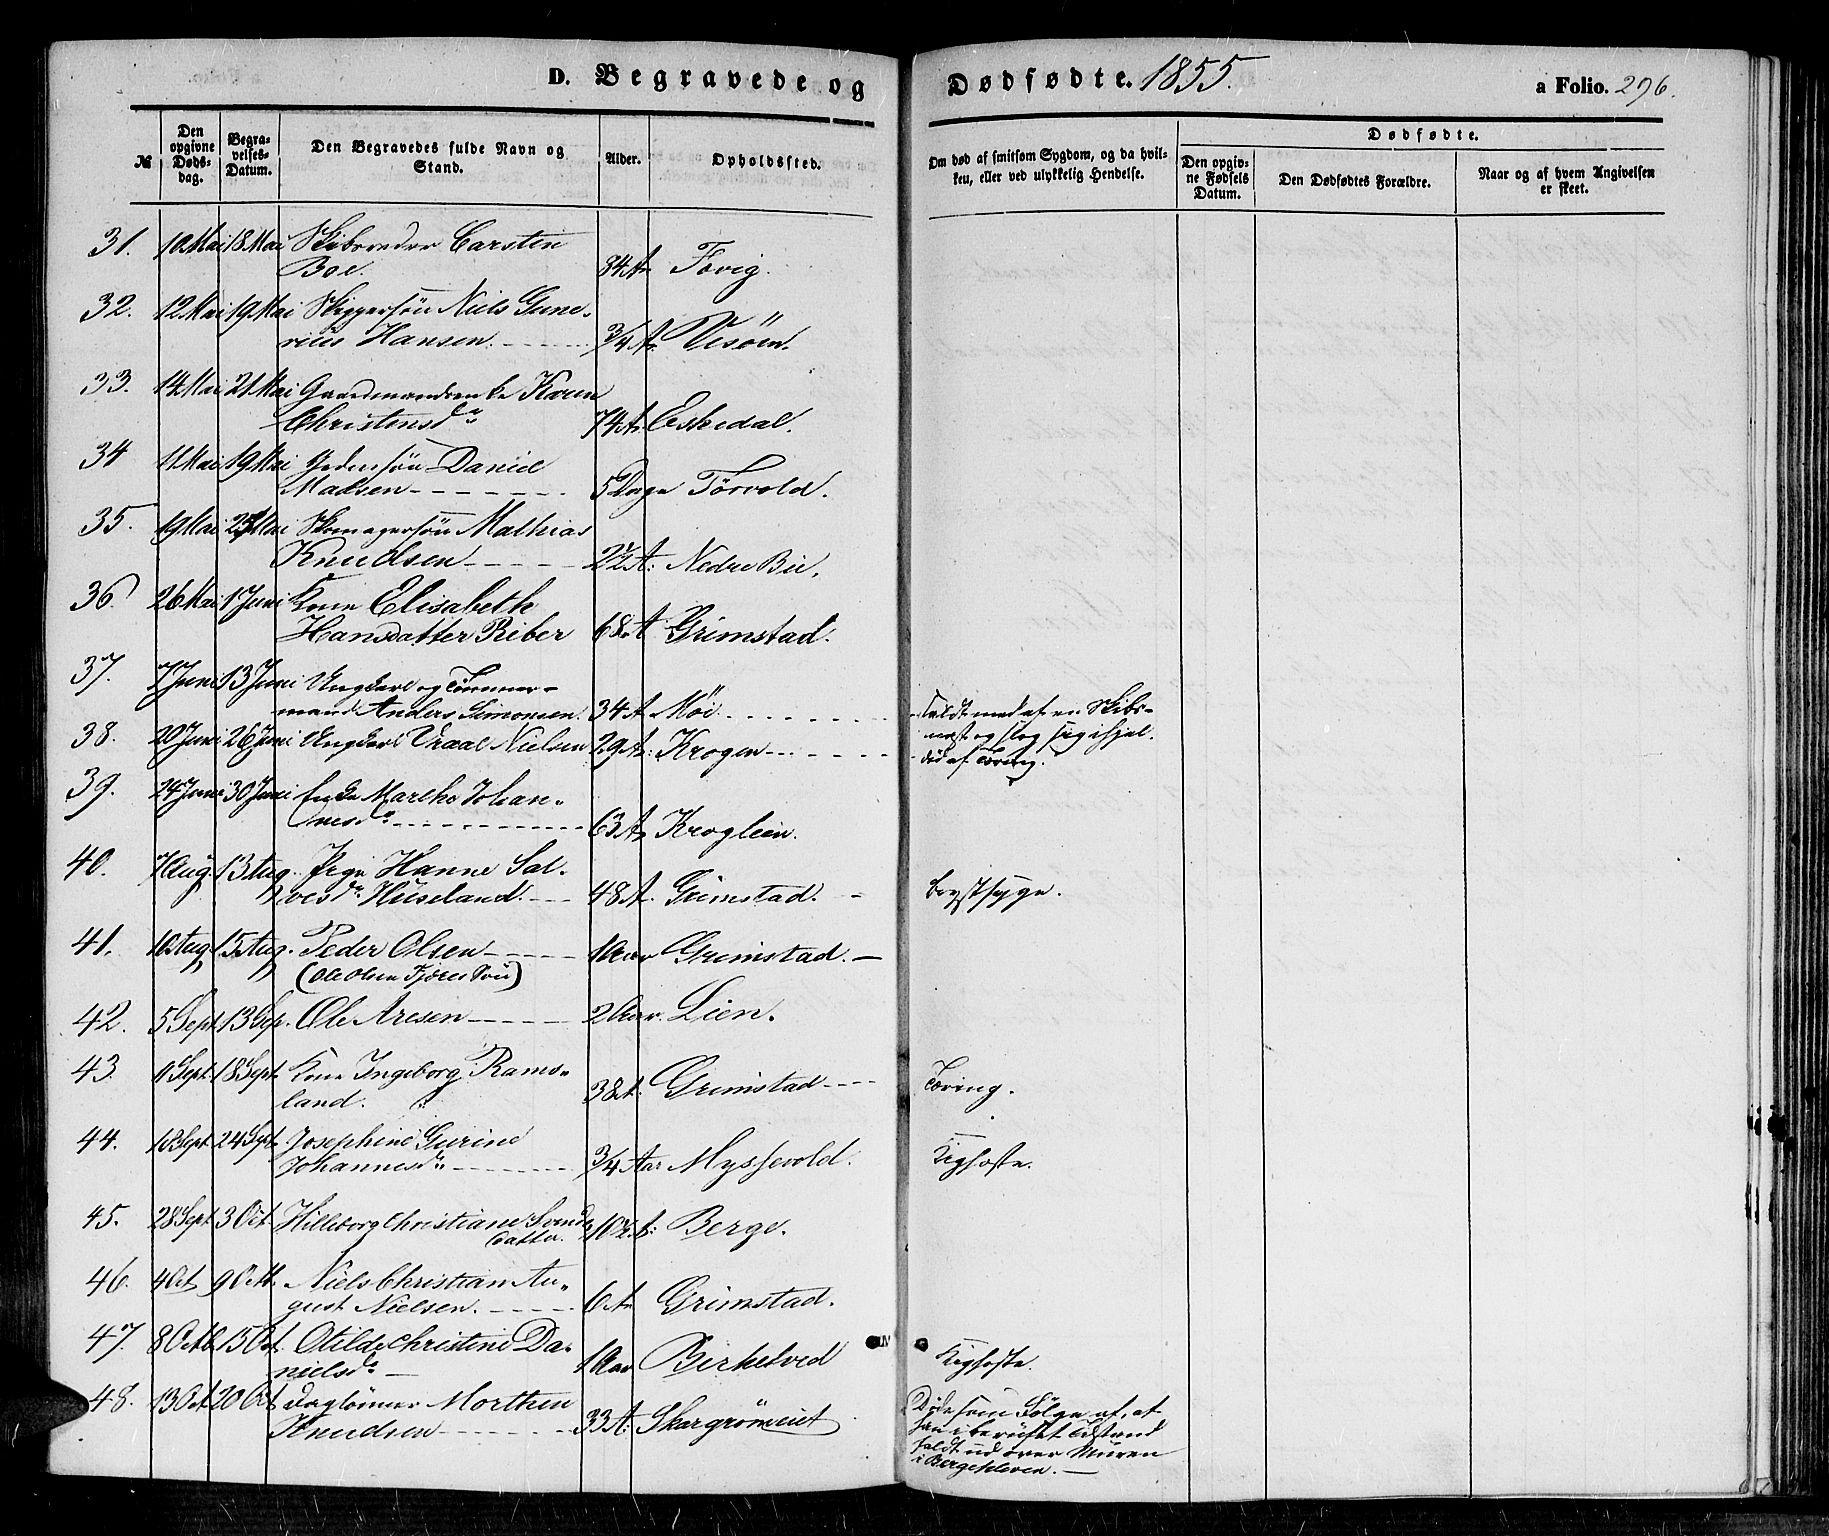 D. Begravede og Dødfødte. 1855.
a Folio. 296.
№
Den opgivne Døds-dag.
Begra-velses-Datum.
Den Begravedes fulde Navn og Stand.
Alder.
Opholdssted.
Om død af smitsom Sygdom, og da hvil-
ken, eller ved ulykkelig Hendelse.
Dødfødte.
Den opgiv-ne Fødsels Datum.
Den Dødfødtes Forældre.
Naar og af hvem Angivelsen er skeet.
31. 10 Mai 18 Mai Skibsreder Carsten
Boe. 84 A. Fevig.
32. 12 Mai 19 Mai Skippersøn Niels Gune-
rius Hansen. 3/4 A. Vesöen.
33. 14 Mai 21 Mai Gaardmandsenke Karen
Christensd. 74 A. Eskedal.
34 11 Mai 19 Mai Daniel
Madsen 5 Dage Törvold.
35. 19 Mai 25 Mai Skomagersøn Mathias
Knudsen 2 1/2 A. Nedre Bie.
36. 26 Mai 1 Juni Kone Elisabeth
Hansdatter Riber 68 A Grimstad.
37. 7 Juni 13 Juni Ungkarl og Tömmer-
mand Anders Simonsen. 34 A Möi. Faldt ned af en Skibs-
mast og slog sig ihjel.
38. 20 Juni 26 Juni Ungkarl Vraal Nielsen 29 A. Krogen død af Tæring.
39. 24 Juni 30 Juni Enke Marthe Johan-
nesd. 63 A. Kroglien.
40. 7 Aug. 13 Aug. Pige Hanne Sal-
vesd. Huseland. 48 A. Grimstad. Brystsyge.
41. 10 Aug. 15 Aug. Peder Olsen 1 Aar Grimstad.
(Ole Olsen Søn)
42. 5 Sept. 13 Sep. Ole Aresen 2 Aar. Lien.
43. Sept. 18 Sept. Kone Ingeborg Rams-
land. 38 A. Grimstad Tæring.
44. 18 Sept. 24 Sept. Josephine Gurine
Johannesd. 3/4 Aar Myssevold. Kighoste.
45. 28 Sept. 3 Oct. Hilleborg Christiane Svends
datter. 10 1/2 A. Berge.
46. 4 Oct 9 Octb. Niels Christian Au-
gust Nielsen. 6 A. Grimstad.
47. 8 Octb. 15 Oct. Otilde Christine Da-
nielsd. 1 Aar Birketved Kighoste.
48. 13 Oct 20 Oct Daglönner Morthen
Knudsen 33 A. Skargrömeiet Döde som Fölge af, at
han i beruset Tilstand
faldt ud over Muren
i Bergekleven.